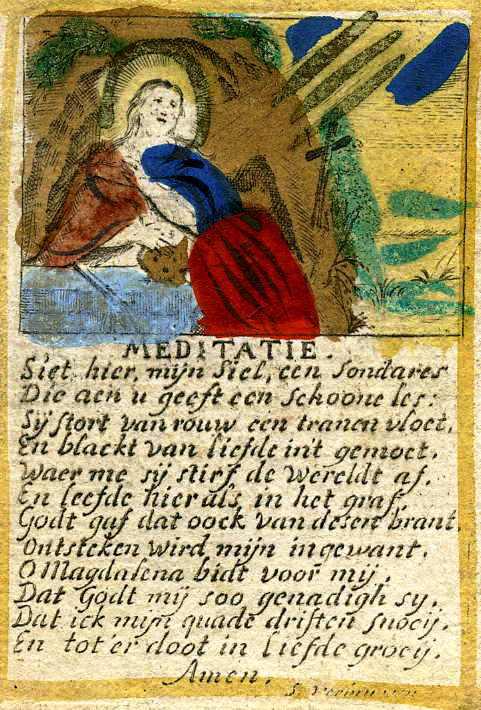 MEDITATIE.
Siet hier, mijn Siel, een Sondares
Die aen u geeft een schoone les:
Sij stort van rouw een tranen vloet,
En blackt van liefde in't gemoet,
Waer me sij stirf de Wereldt af,
En leefde hier als in het graf,
Godt gaf dat oock van desen brant,
Ontsteken wird mijn ingewant,
O Magdalena bidt voor mij,
Dat Godt mij soo genadigh sy,
Dat ick mijn quade driften snoeij,
En tot'er doot in liefde groeij.
Amen.